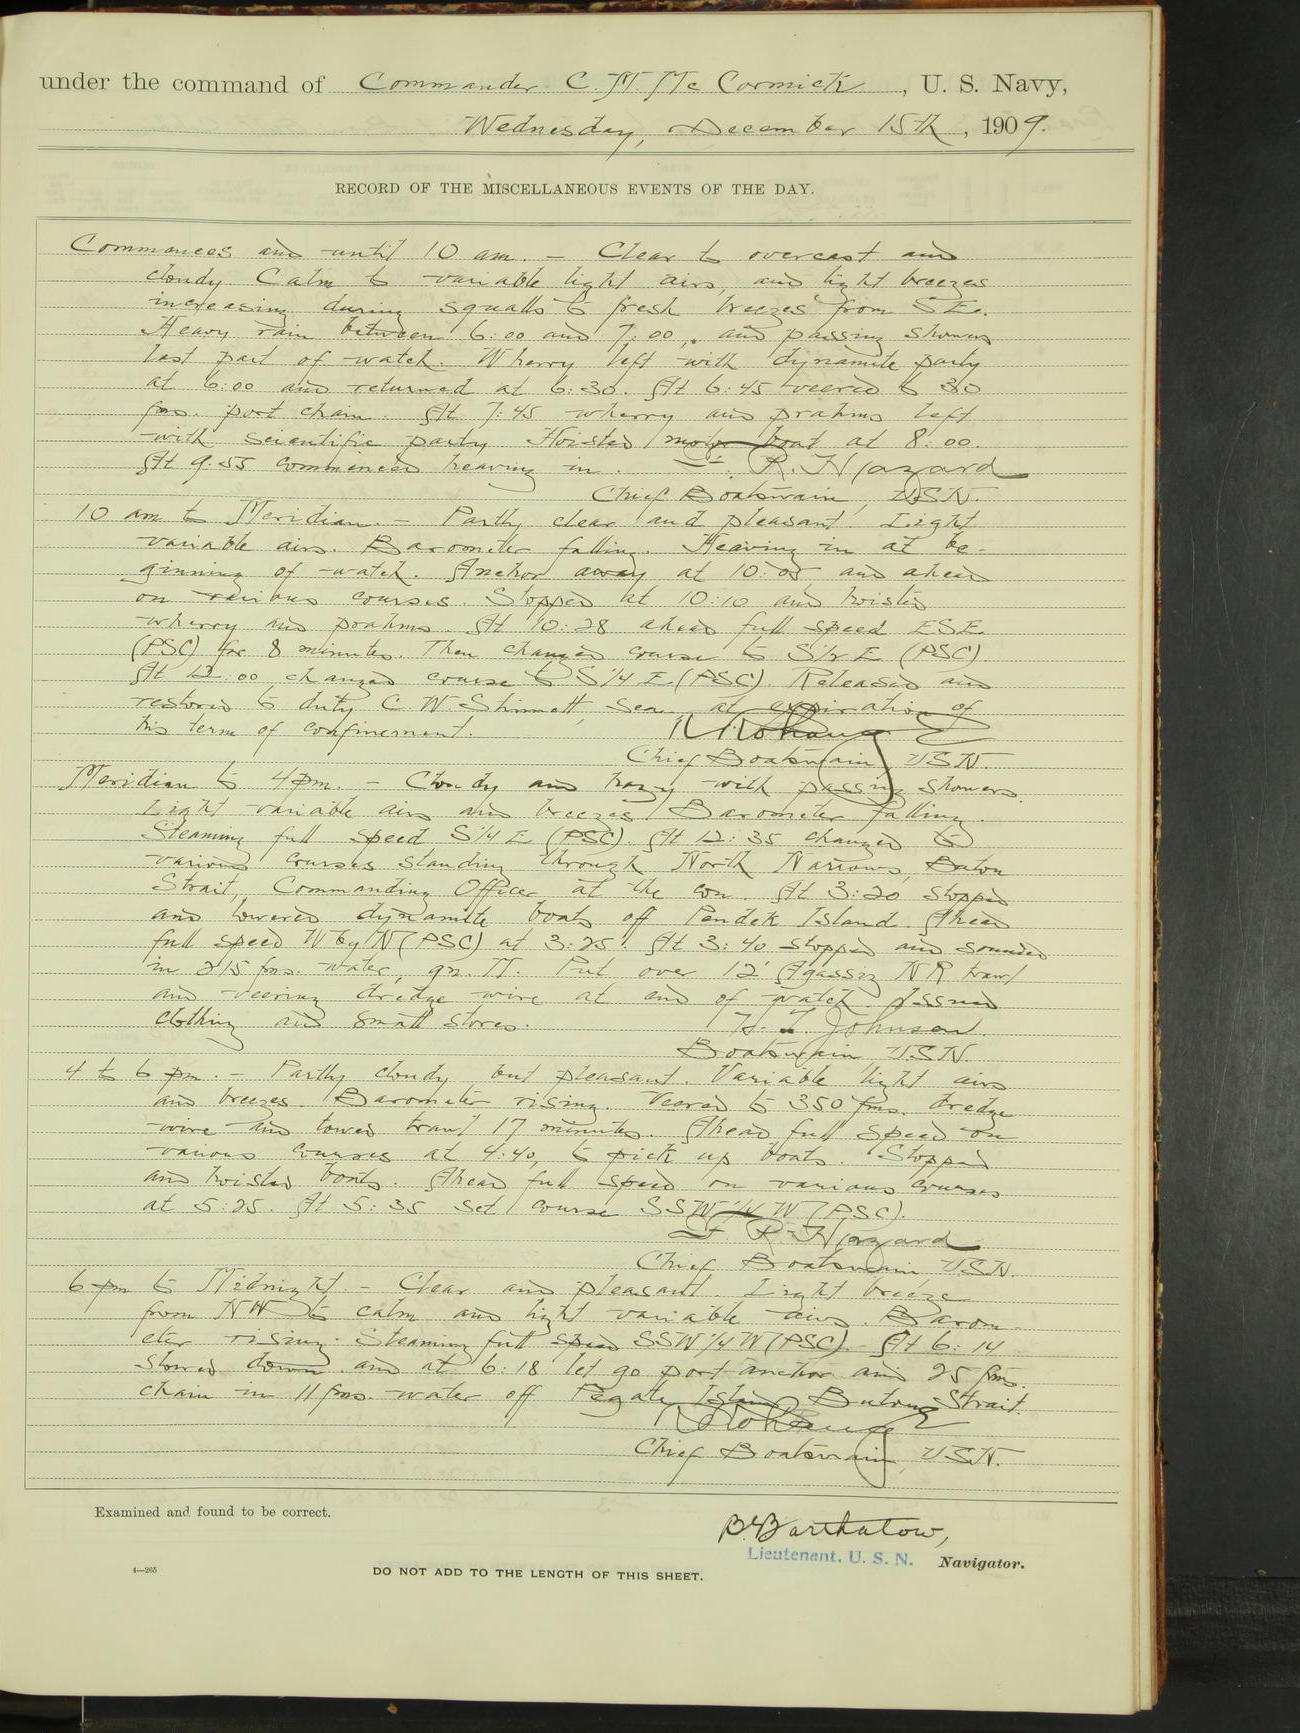 under the command of Commander C. M. Mc Cormick, U. S. Navy,
Wednesday, December 15th, 1909.
RECORD OF THE MISCELLANEOUS EVENTS OF THE DAY.
Commences and until 10 am. - Clear to overcast and
cloudy. Calm to variable light airs, and light breezes
increasing during squalls to fresh breezes from SE.
Heavy rain between 6:00 and 7:00, and passing showers
last part of watch. Wherry left with dynamite party
at 6:00 and returned at 6:30. At 6:45 veered to 30
fms. port chain. At 7:45 wherry and prahms left
with scientific party. Hoisted motor boat at 8:00.
At 9:55 commenced heaving in. F. R. Hazard
Chief Boatswain, USN.
10 am to Meridian. - Partly clear and pleasant. Light
variable airs. Barometer falling. Heaving in at be-
ginning of watch. Anchor away at 10:05 and ahead
on various courses. Stopped at 10:10 and hoisted
wherry and prahms. At 10:28 ahead full speed ESE
(PSC) for 8 minutes. Then changed course to S½E (PSC).
At 12:00 changed course to S¼E. (PSC). Released and
restored to duty C. W. Sea. at expiration of
his term of confinement.
Chief Boatswain, USN.
Meridian to 4 pm. - Cloudy and hazy with passing showers.
Light variable airs and breezes. Barometer falling.
Steaming full speed S¼E (PSC). At 12:35 changed to
various courses standing through North Narrows, Buton
Strait, Commanding Officer at the con. At 3:20 stopped
and lowered dynamite boats off Pendek Island. Ahead
full speed W by N (PSC) at 3:25. At 3:40 stopped and sounded
in 215 fms. water, gn. M. Put over 12' Agassiz NR trawl
and veering dredge wire at end of watch. Issued
clothing and small stores. H. L. Johnson
Boatswain USN.
4 to 6 pm. - Partly cloudy but pleasant. Variable light airs
and breezes. Barometer rising. Veered to 350 fms. dredge
wire and towed trawl 17 minutes. Ahead full speed on
various courses at 4:40, to pick up boats. Stopped
and hoisted boats. Ahead full speed on various courses
at 5:25. At 5:35 set course SSW¼W (PSC).
F. R. Hazard
Chief Boatswain, USN.
6 pm to Midnight. - Clear and pleasant. Light breeze
from NW to calm and light variable airs. Barom-
eter rising. Steaming full speed SSW¼W (PSC). At 6:14
slowed down and at 6:18 let go port anchor and 25 fms.
chain in 11 fms. water off Island Buton Strait.
Chief Boatswain, USN.
Examined and found to be correct.
Lieutenant, U. S. N. Navigator.
4—265
DO NOT ADD TO THE LENGTH OF THIS SHEET.